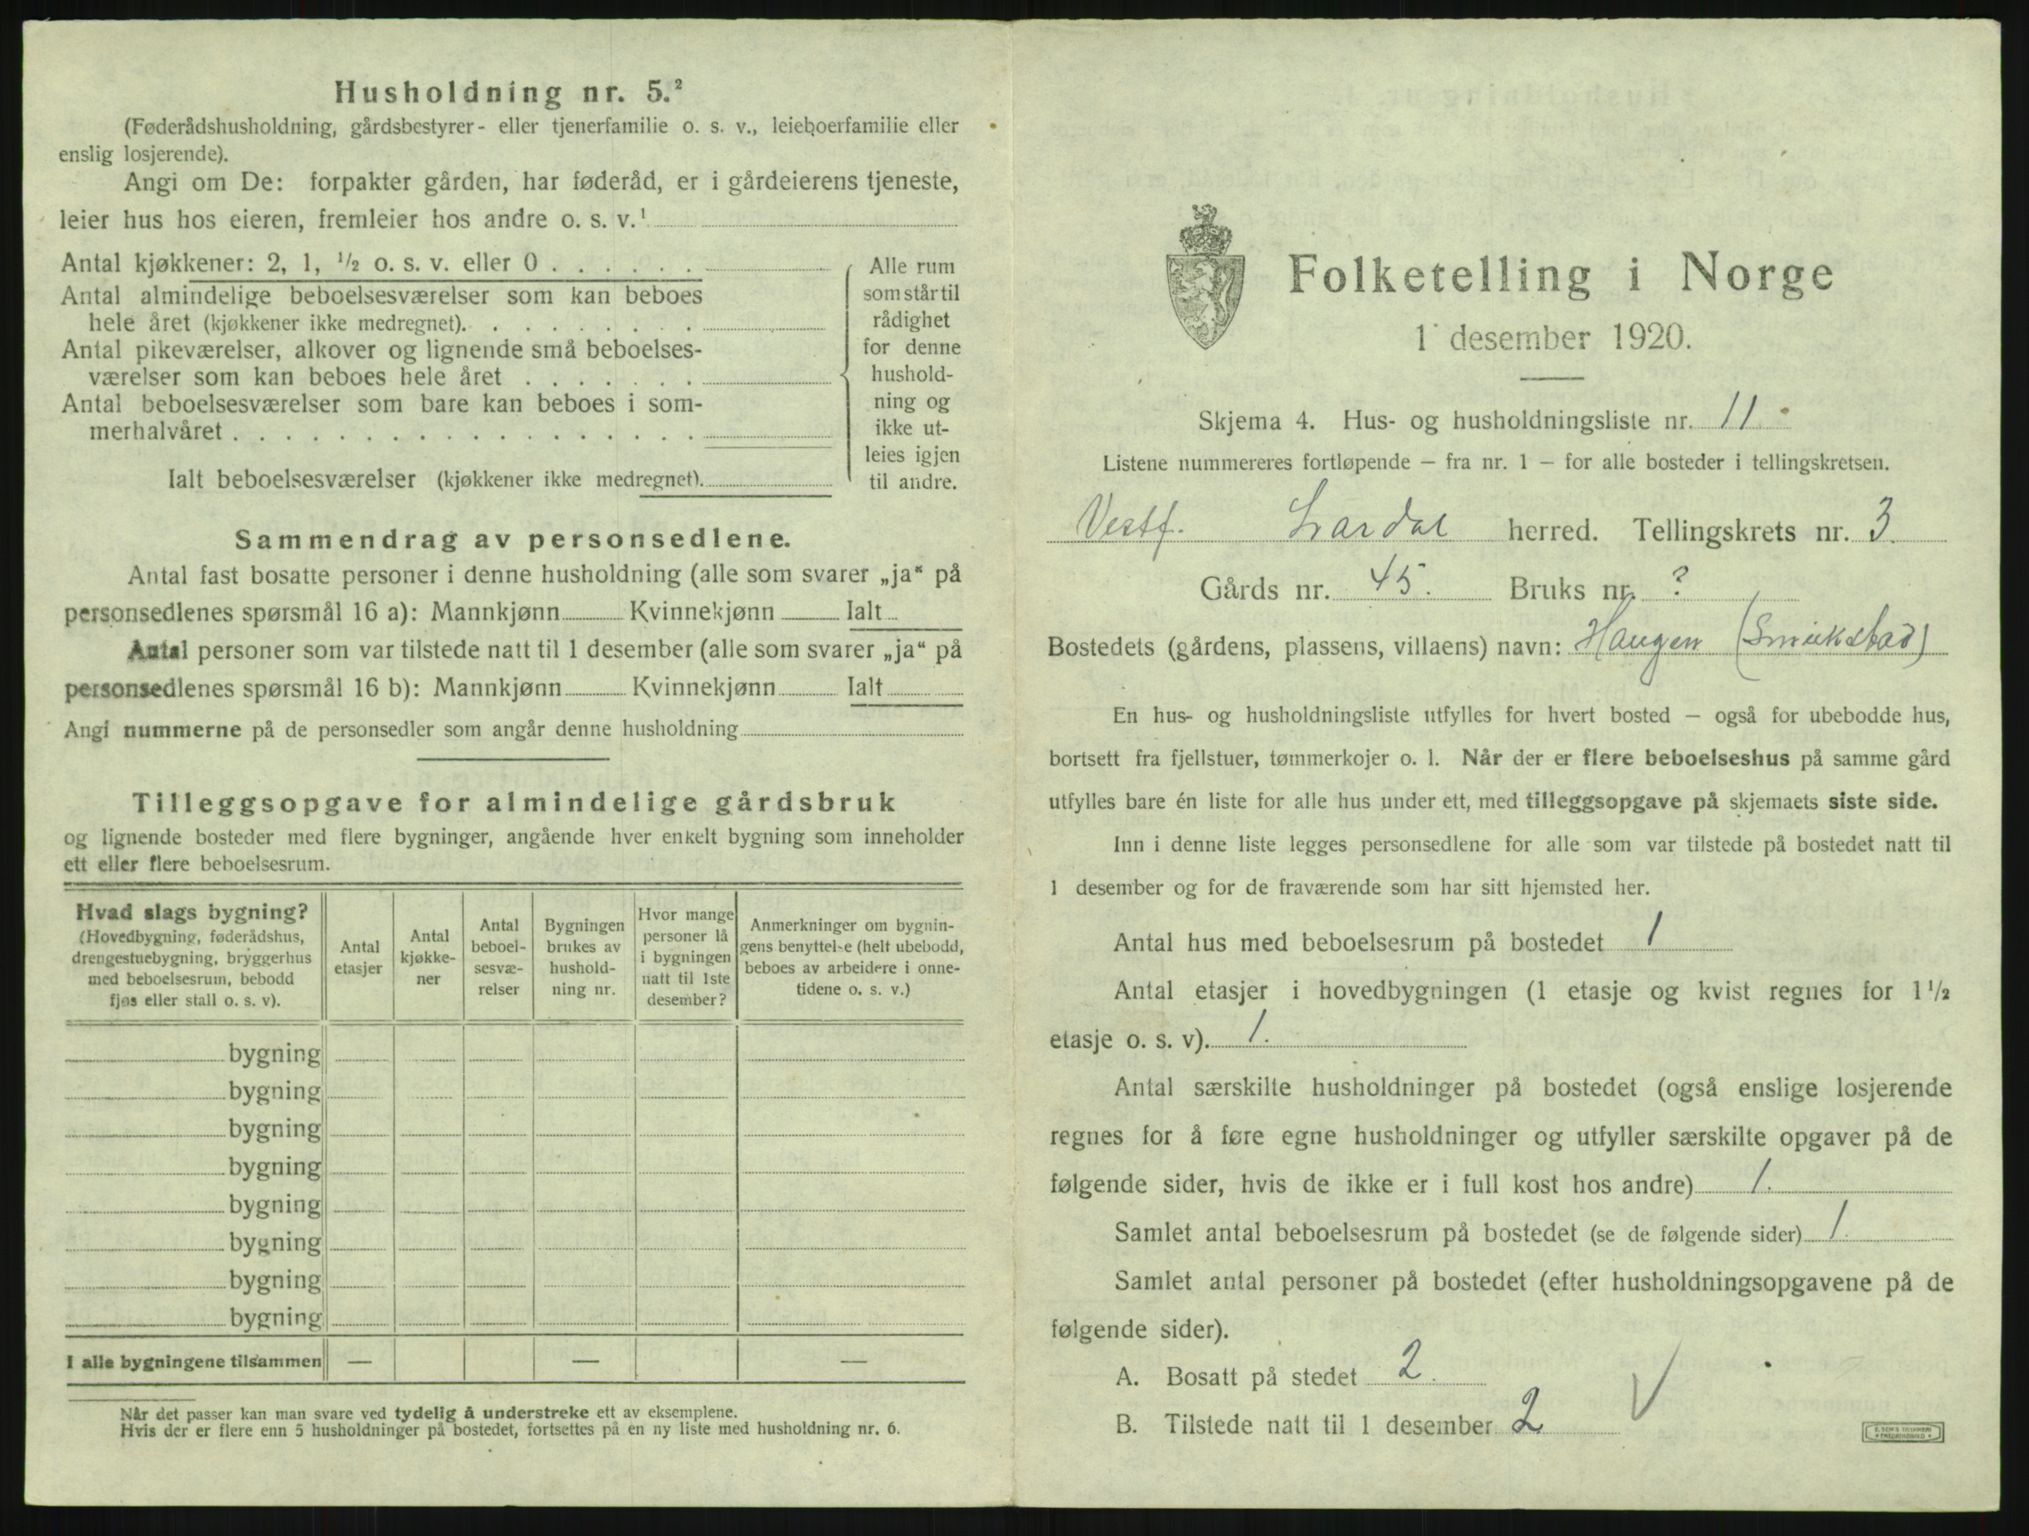 Husholdning nr. 5.²
(Føderådshusholdning, gårdsbestyrer- eller tjenerfamilie o. s. v., leieboerfamilie eller
enslig losjerende).
Angi om De: forpakter gården, har føderåd, er i gårdeierens tjeneste,
leier hus hos eieren, fremleier hos andre o. s. v.¹
Antal kjøkkener: 2, 1, ½ o. s. v. eller 0
Antal almindelige beboelsesværelser som kan beboes
hele året (kjøkkener ikke medregnet).
Antal pikeværelser, alkover og lignende små beboelses-
værelser som kan beboes hele året
Antal beboelsesværelser som bare kan beboes i som-
merhalvåret
Ialt beboelsesværelser (kjøkkener ikke medregnet).
Alle rum
som står til
rådighet
for denne
hushold-
ning og
ikke ut-
leies igjen
til andre.
Sammendrag av personsedlene.
Antal fast bosatte personer i denne husholdning (alle som svarer „ja“ på
personsedlenes spørsmål 16 a): Mannkjønn Kvinnekjønn Ialt
Antal personer som var tilstede natt til 1 desember (alle som svarer „ja“ på
personsedlenes spørsmål 16 b): Mannkjønn Kvinnekjønn Ialt
Angi nummerne på de personsedler som angår denne husholdning
Tilleggsopgave for almindelige gårdsbruk
og lignende bosteder med flere bygninger, angående hver enkelt bygning som inneholder
ett eller flere beboelsesrum.
Hvad slags bygning?
(Hovedbygning, føderådshus,
drengestuebygning, bryggerhus
med beboelsesrum, bebodd
fjøs eller stall o. s. v).
Antal
etasjer
Antal
kjøkke-
ner
Antal
beboel-
sesvæ-
relser
Bygningen
brukes av
hushold-
ning nr.
Hvor mange
personer lå
i bygningen
natt til 1ste
desember?
Anmerkninger om bygnin-
gens benyttelse (helt ubebodd,
beboes av arbeidere i onne-
tidene o. s. v.)
bygning
bygning
bygning
bygning
bygning
bygning
bygning
bygning
I alle bygningene tilsammen — — —
Når det passer kan man svare ved tydelig å understreke ett av eksemplene.
Hvis der er flere enn 5 husholdninger på bostedet, fortsettes på en ny liste med husholdning nr. 6.
Folketelling i Norge
1 desember 1920.
Skjema 4. Hus- og husholdningsliste nr. 11
Listene nummereres fortløpende – fra nr. 1 – for alle bosteder i tellingskretsen.
Vestf. Lardal herred. Tellingskrets nr. 3.
Gårds nr. 45. Bruks nr. ?
Bostedets (gårdens, plassens, villaens) navn: Haugen (Smukstad)
En hus- og husholdningsliste utfylles for hvert bosted – også for ubebodde hus,
bortsett fra fjellstuer, tømmerkojer o. l. Når der er flere beboelseshus på samme gård
utfylles bare én liste for alle hus under ett, med tilleggsopgave på skjemaets siste side.
Inn i denne liste legges personsedlene for alle som var tilstede på bostedet natt til
1 desember og for de fraværende som har sitt hjemsted her.
Antal hus med beboelsesrum på bostedet 1
Antal etasjer i hovedbygningen (1 etasje og kvist regnes for 1½
etasje o. s. v). 1.
Antal særskilte husholdninger på bostedet (også enslige losjerende
regnes for å føre egne husholdninger og utfyller særskilte opgaver på de
følgende sider, hvis de ikke er i full kost hos andre) 1.
Samlet antal beboelsesrum på bostedet (se de følgende sider) 1.
Samlet antal personer på bostedet (efter husholdningsopgavene på de
følgende sider).
A. Bosatt på stedet 2.
B. Tilstede natt til 1 desember 2